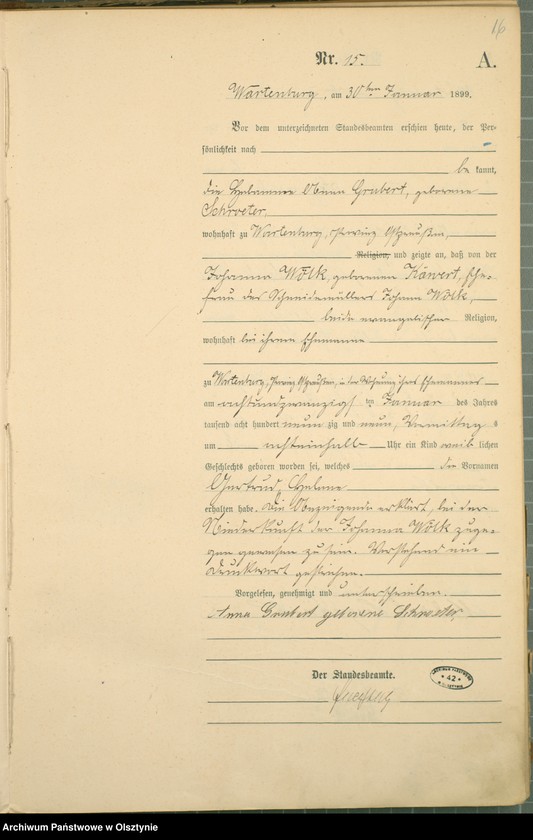 16
Nr. 15. A.
Wartenburg, am 30ten Januar 1899.
Vor dem unterzeichneten Standesbeamten erschien heute, der Per-
sönlichkeit nach
be kannt,
die Hebamme Anna Grubert, geborene
Schroeter,
wohnhaft zu Wartenburg, Provinz Ostpreußen,
Religion, und zeigte an, daß von der
Johanna Wölk, geborenen Käwert, Ehe-
frau des Schneidemüllers Johann Wölk,
beide evangelischer Religion,
wohnhaft bei ihrem Ehemanne
zu Wartenburg, Provinz Ostpreußen, in der Wohnung ihres Ehemannes
am achtundzwanzigsten Januar des Jahres
tausend acht hundert neunzig und neun, Vormittags
um achteinhalb Uhr ein Kind weiblichen
Geschlechts geboren worden sei, welches die Vornamen
Gertrud Helene
erhalten habe. Die Anzeigende erklärt, bei der
Niederkunft der Johanna Wölk zuge-
gen gewesen zu sein. Vorstehend ein
Druckwort gestrichen.
Vorgelesen, genehmigt und unterschrieben.
Anna Grubert geborene Schroeter,
Der Standesbeamte.
ARCHIWUM PAŃSTWOWE
* 42 *
W OLSZTYNIE
Archiwum Państwowe w Olsztynie